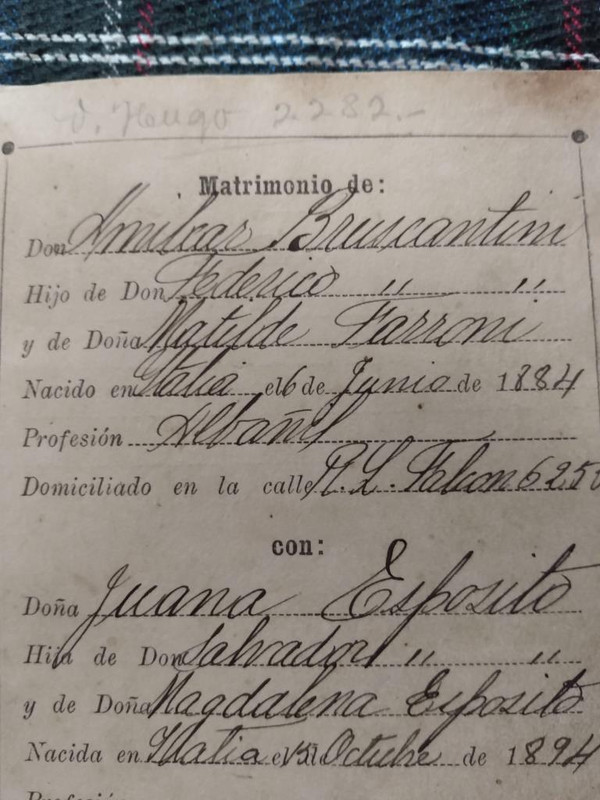 V. Hugo 2282.-
Matrimonio de:
Don Amilcar Bruscantini
Hijo de Don Federico " "
y de Doña Matilde Farroni
Nacido en Italia el 6 de Junio de 1884
Profesión Albañil
Domiciliado en la calle R. L. Falcon 6250
con:
Doña Juana Esposito
Hija de Don Salvador " "
y de Doña Magdalena Esposito
Nacida en Italia el 15 de Octubre de 1894